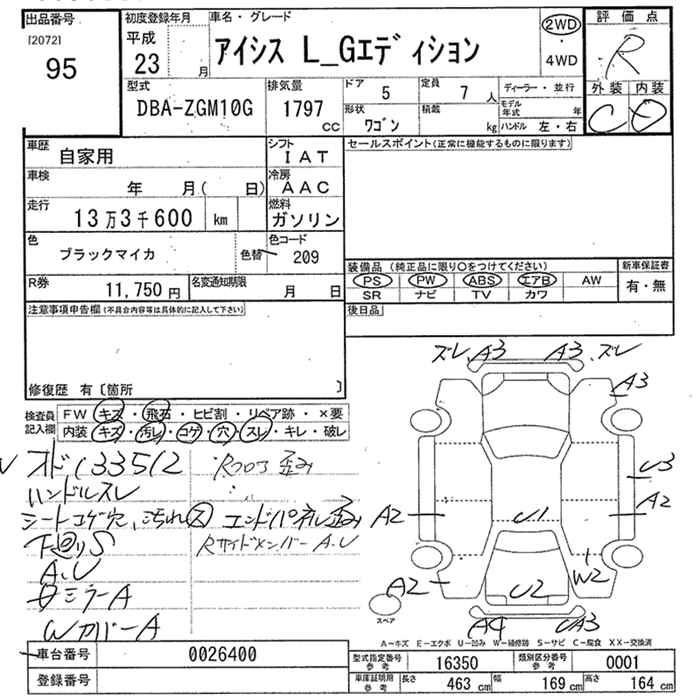 出品番号
[2072]
95
初度登録年月
平成
23 月
車名・グレード
アイシス L_Gエディション
2WD
・
4WD
評価点
R
外装 内装
C D
型式
DBA-ZGM10G
排気量
1797
CC
ドア
5
定員
7 人
形状
ワゴン
積載
kg
ディーラー・並行
モデル年式 年
ハンドル 左・右
車歴
自家用
シフト
IAT
車検
年 月( 日)
冷房
AAC
走行
13万3千600 km
燃料
ガソリン
色
ブラックマイカ
色替
色コード
209
R券
11,750 円
名変通知期限
月 日
セールスポイント(正常に機能するものに限ります)
装備品 (純正品に限り〇をつけてください)
PS PW ABS エアB AW
SR ナビ TV カワ
新車保証書
有・無
後日品
注意事項申告欄(不具合内容等は具体的に記入して下さい)
修復歴 有〔箇所 〕
検査員
記入欄
FW キズ・飛石・ヒビ割・リペア跡・×要
内装 キズ・汚レ・コゲ・穴・スレ・キレ・破レ
オド133512
ハンドルスレ
シートコゲ穴、汚れ ス
下廻りS
A.U
ミラーA
WカバーA
Rフロア歪み
エンドパネル歪み
RサイドメンバーA.U
ズレ、A3
A3、ズレ
A3
U3
A2
A2
U1
W2
A2
U2
A4
UA3
スペア
A-キズ E-エクボ U-凹み W-補修跡 S-サビ C-腐食 XX-交換済
車台番号
0026400
登録番号
型式指定番号
参考
16350
類別区分番号
参考
0001
車庫証明用
参考
長さ 463 cm
幅 169 cm
高さ 164 cm